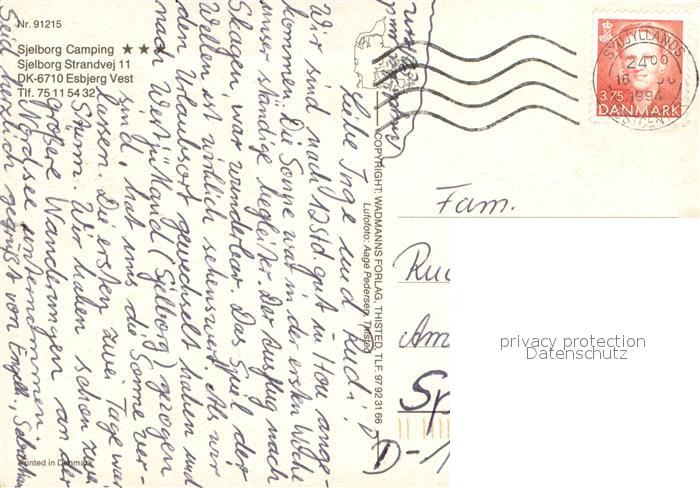 Nr. 91215
Sjelborg Camping ★★★
Sjelborg Strandvej 11
DK-6710 Esbjerg Vest
Tlf. 75 11 54 32
Liebe Inge und Rudi!
Wir sind nach 12 Std. gut in Hou ange-
kommen. Die Sonne war in der ersten Woche
unser ständige Begleiter. Der Ausflug nach
Skagen, war wunderbar. Das Spiel der
Wellen ist wirklich sehenswert. Als wir
den Urlaubsort gewechselt haben und
nach Westjütland (Sjelborg) gezogen
sind, hat uns die Sonne ver-
lassen. Die ersten zwei Tage war
Sturm. Wir haben schon zwei
größere Wanderungen an der
Nordsee unternommen.
Seid herzlich gegrüßt von
Printed in Denmark
COPYRIGHT: WADMANNS FORLAG, THISTED, TLF. 97 92 31 66
Luftfoto: Aage Pedersen, Thisted
SYDJYLLANDS
24 00
16
1994
POSTCENTER
3.75
DANMARK
Fam.
Rud
Am
Sp
D-1
privacy protection
Datenschutz